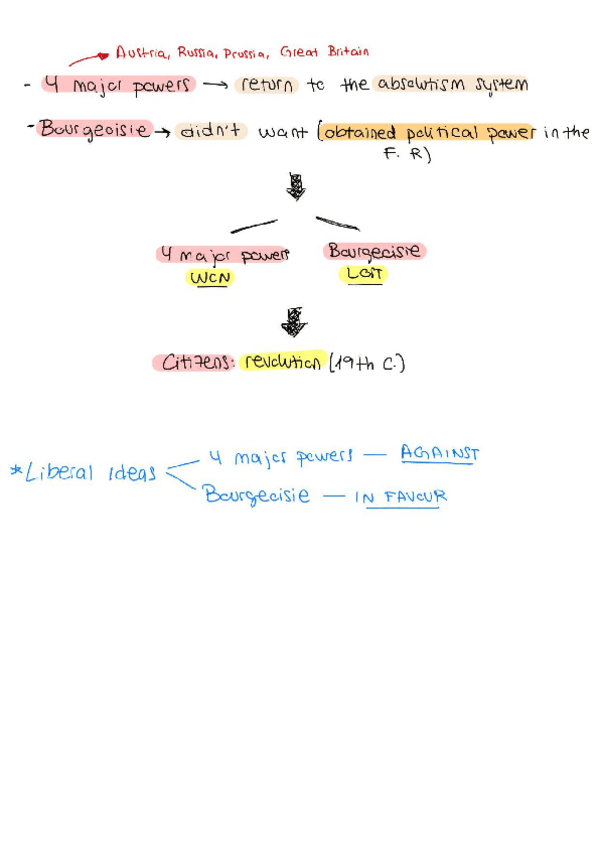 Austria, Russia, Prussia, Great Britain
- 4 major powers → return to the absolutism system
- Bourgeoisie → didn't want (obtained political power in the
F. R)
4 major powers Bourgeoisie
WON LOST
Citizens: revolution (19th C.)
*Liberal ideas
4 major powers — AGAINST
Bourgeoisie — IN FAVOUR